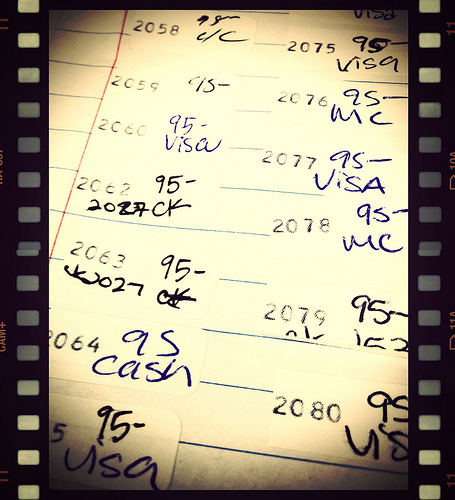 2058 95-
2059 95-
2060 95-
Visa
2062 95-
2027 CK
2063 95-
CK 2027
2064 95
Cash
5 95-
Visa
Visa
2075 95-
Visa
2076 95-
MC
2077 95-
VISA
2078 95-
MC
2079 95-
2080 95
Vis